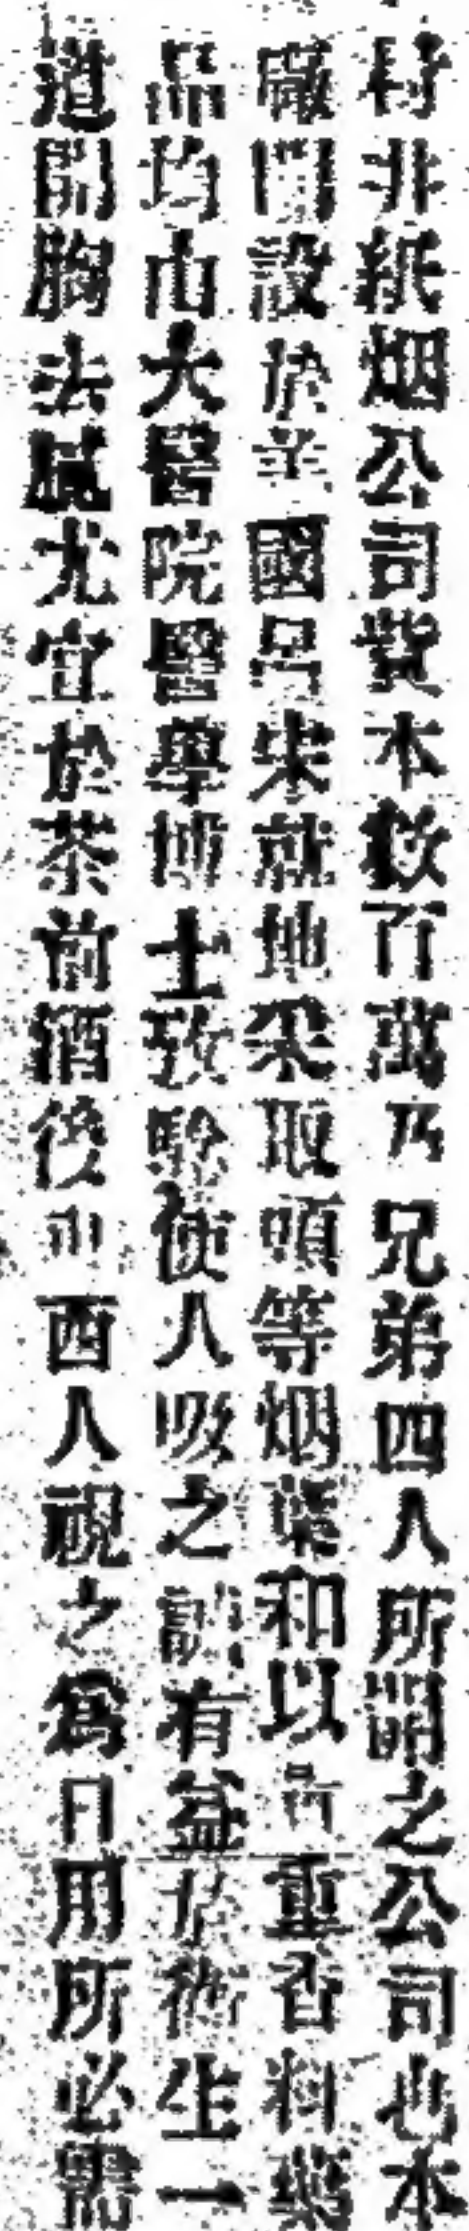 村井紙烟公司資本数百萬乃兄弟四人所開之公司也本
廠開設於美國呂宋就地采取頭等烟葉和以貴重香料藥
品均由大醫院醫學博士攷驗使人吸之誠有益於衛生一
道開胸法膩尤宜於茶前酒後山西人視之爲日用所必需